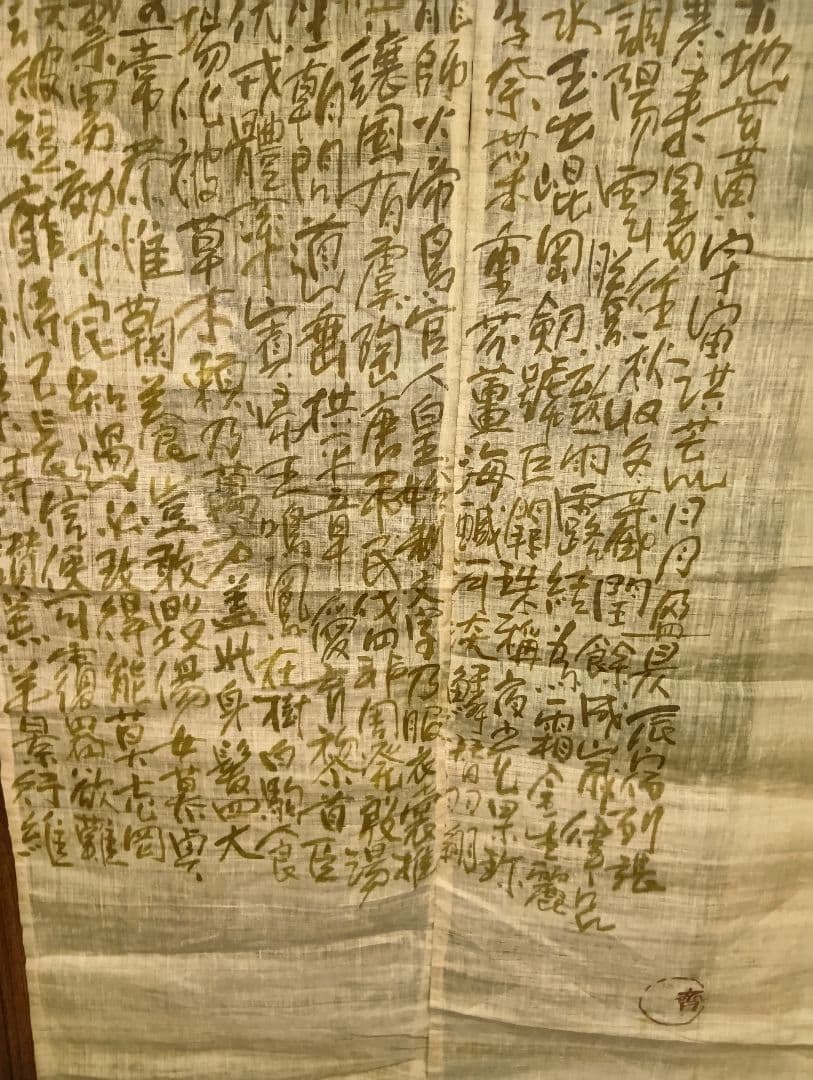 地玄黃宇宙洪荒日月盈昃辰宿列張
寒來暑往秋收冬藏閏餘成歲律呂
調陽雲騰致雨露結為霜金生麗
水玉出崐岡劍號巨闕珠稱夜光果珍
李柰菜重芥薑海鹹河淡鱗潛羽翔
龍師火帝鳥官人皇始制文字乃服衣裳推
讓國有虞陶唐弔民伐罪周發殷湯
坐朝問道垂拱平章愛育黎首臣
伏戎體率賓歸王鳴鳳在樹白駒食
場化被草木賴及萬方蓋此身髮四大
五常恭惟鞠養豈敢毀傷女慕貞
男効才良知過必改得能莫忘罔
彼短靡恃己長信使可覆器欲難
詩讚羔羊景行維
齊